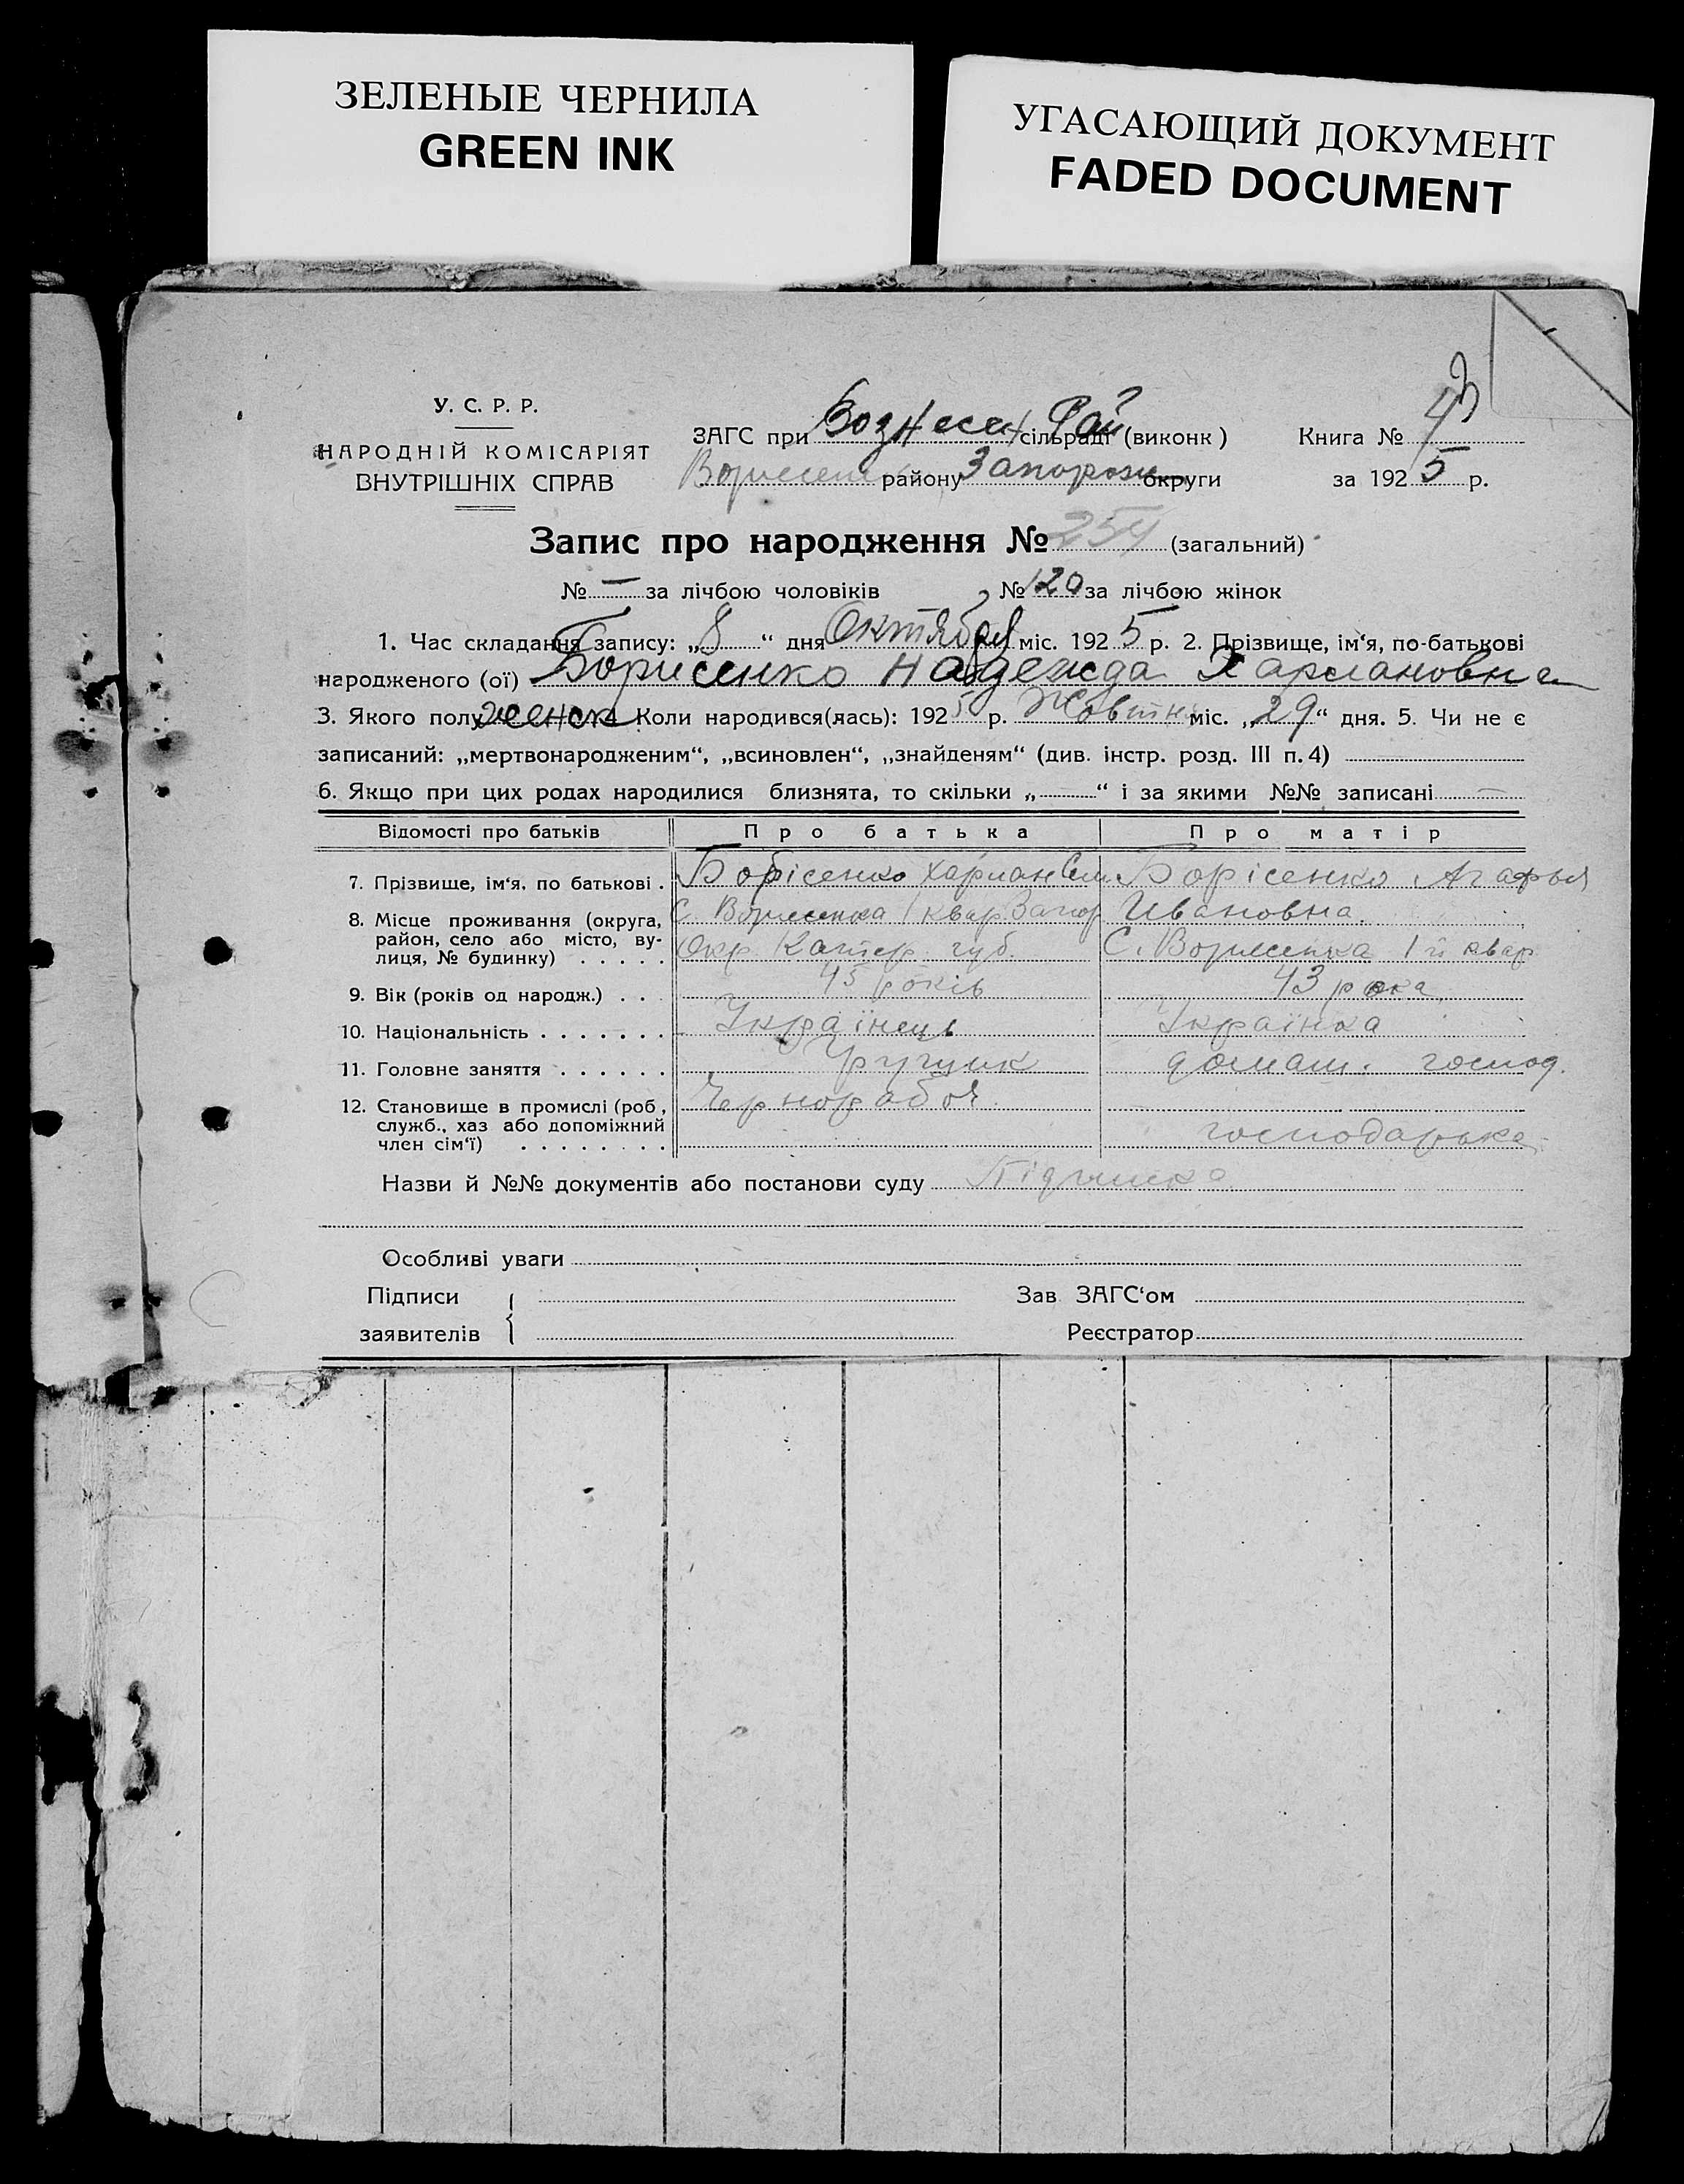 ЗЕЛЕНЫЕ ЧЕРНИЛА
GREEN INK
УГАСАЮЩИЙ ДОКУМЕНТ
FADED DOCUMENT
У. С. Р. Р.
НАРОДНІЙ КОМІСАРІЯТ
ВНУТРІШНІХ СПРАВ
ЗАГС при Вознесен Рай сільраді (виконк)
району Запорож округи
Книга № 43
за 1925 р.
Запис про народження № 254 (загальний)
№ — за лічбою чоловіків № 120 за лічбою жінок
1. Час складання запису: „8“ дня Октября міс. 1925 р. 2. Прізвище, ім‘я, по-батькові
народженого (ої) Борисенко Надежда Харлановна
3. Якого полу женск 4. Коли народився(лась): 1925 р. Жовтня міс. „29“ дня. 5. Чи не є
записаний: „мертвонародженим“, „всиновлен“, „знайденям“ (див. інстр. розд. III п. 4)
6. Якщо при цих родах народилися близнята, то скільки „—“ і за якими №№ записані —
Відомості про батьків Про батька Про матір
7. Прізвище, ім‘я, по батькові . Борісенко Харлан Сем. Борісенко Агафья
Ивановна
8. Місце проживання (округа, С. Вознесенка 1 квар. Запор
район, село або місто, ву-
лиця, № будинку) . . . . . Окр. Катер. губ. С. Вознесенка 1й квар
9. Вік (років од народж.) . . . 45 років 43 рока
10. Національність . . . . . . . Українець Українка
11. Головне заняття . . . . . . домаш. господ.
12. Становище в промислі (роб., Чернороб
служб., хаз або допоміжний
член сім‘ї) . . . . . . . . господарька
Назви й №№ документів або постанови суду
Особливі уваги
Підписи
заявителів
Зав ЗАГС‘ом
Реєстратор